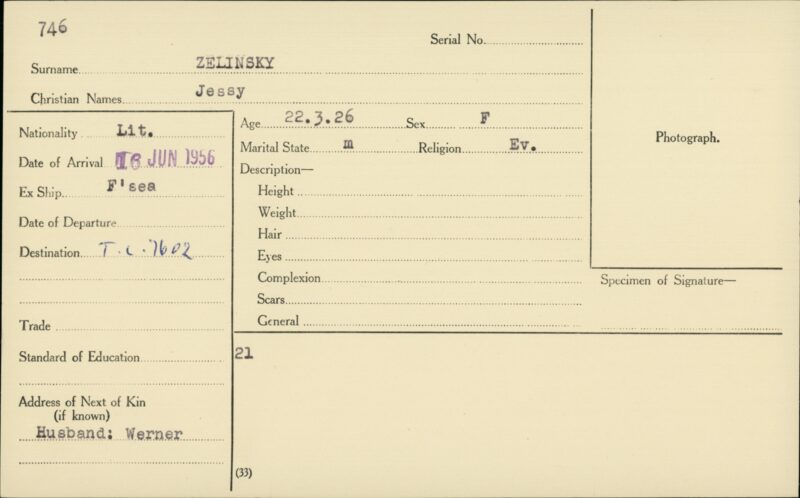 746
Serial No.
Surname ZELINSKY
Christian Names Jessy
Nationality Lit.
Date of Arrival 16 JUN 1956
Ex Ship F'sea
Date of Departure
Destination T.C. 7602
Trade
Standard of Education
Address of Next of Kin
(if known)
Husband: Werner
Age 22.3.26 Sex F
Marital State m Religion Ev.
Description—
Height
Weight
Hair
Eyes
Complexion
Scars
General
21
(33)
Photograph.
Specimen of Signature—